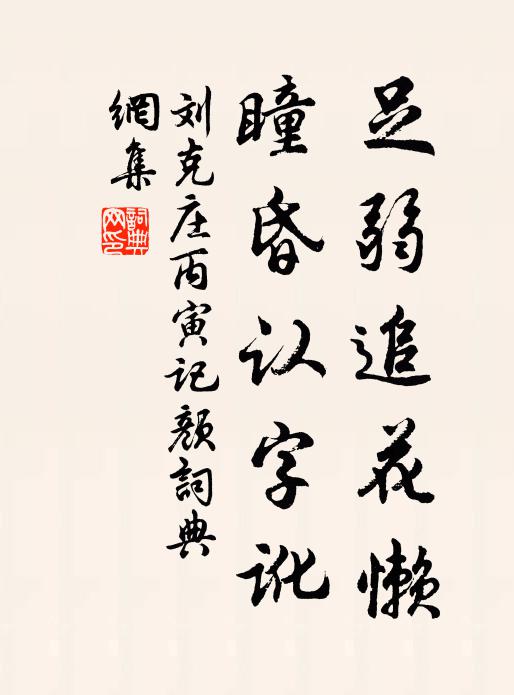 足弱追花懒
瞳昏认字讹
刘克庄丙寅记颜詞典
網集
詞典
网印